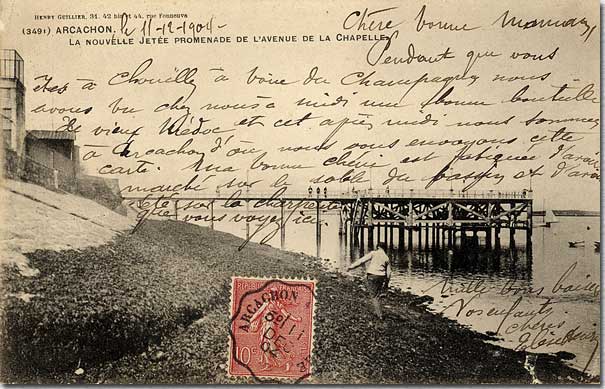 HENRY GUILLIER, 31. 42 bis et 44, rue Fonneuve
(3491) ARCACHON. le 11-12-1904
LA NOUVELLE JETÉE PROMENADE DE L'AVENUE DE LA CHAPELLE
Chère bonne Maman,
Pendant que vous
à boire du Champagne nous
avons bu chez nous à midi une bonne bouteille
de vieux Médoc et cet après midi nous sommes
à Arcachon d'où nous vous envoyons cette
carte. Ma bonne chérie est fatiguée d'avoir
marché sur le sable du et d'avoir
sur la charpente
que vous voyez ici
Mille bons baisers
Vos enfants
chéris
RÉPUBLIQUE FRANÇAISE
ARCACHON
10c